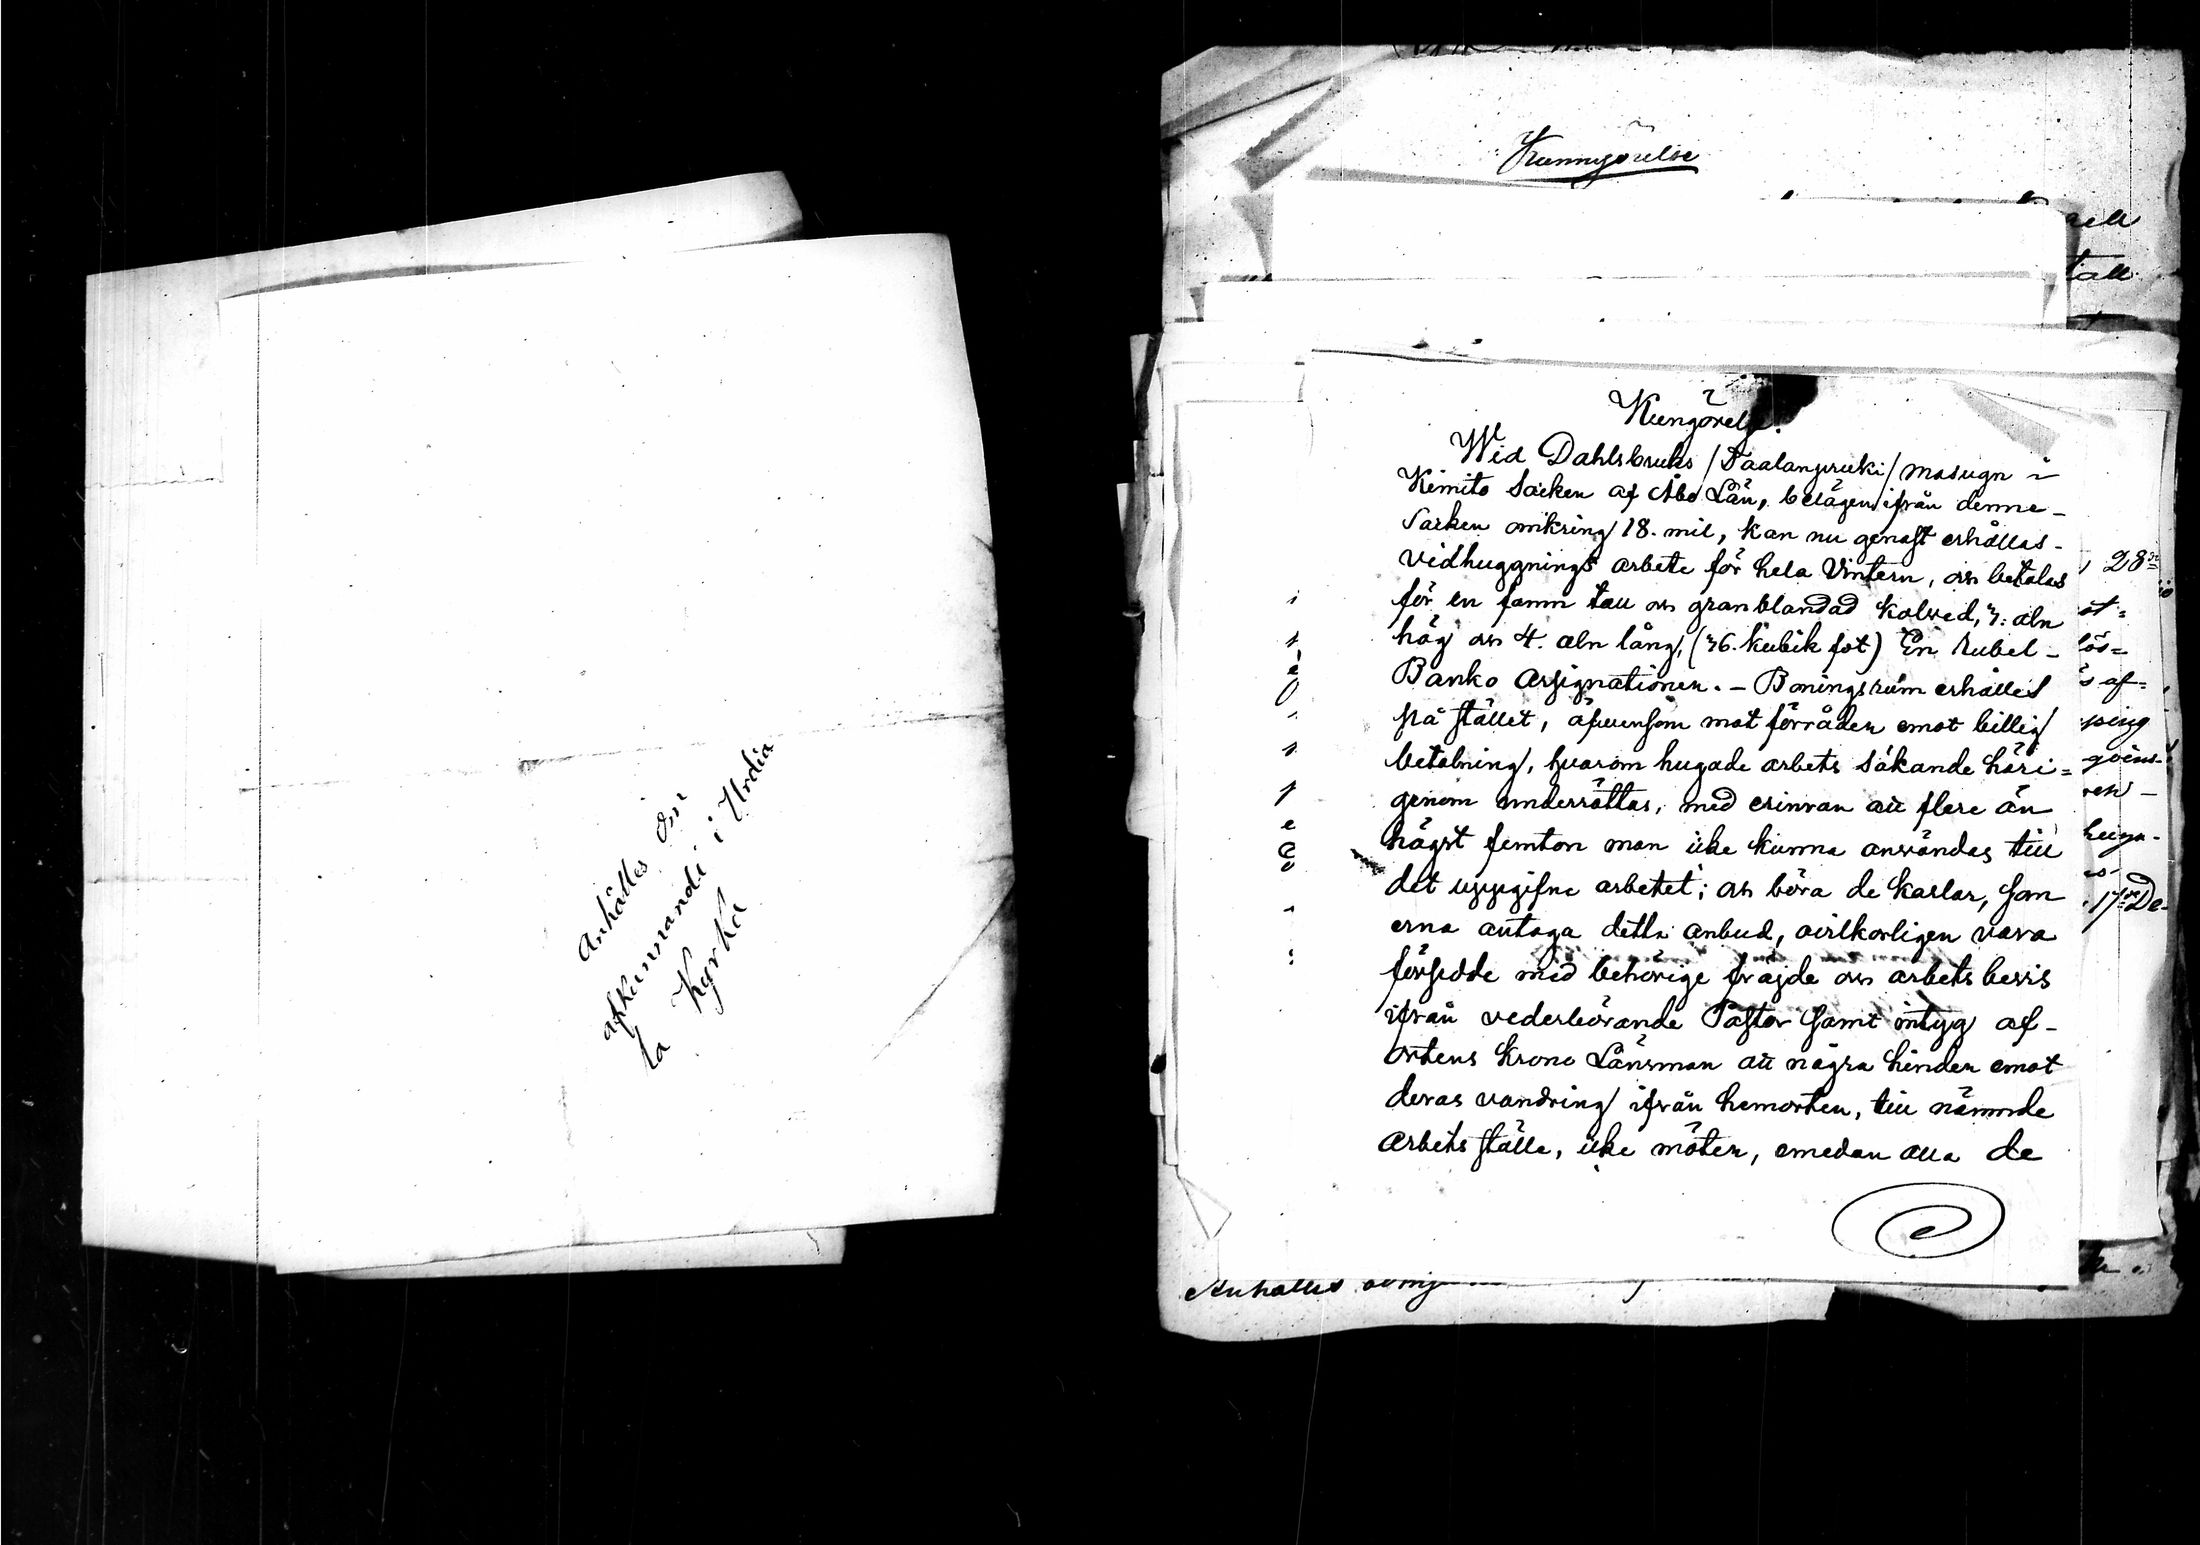 Anhålles om
afkunnande i Urdia
la Kyrka
Kunngörelse
Kungörelse.
Wid Dahlsbruks /Taalanpruki/ masugn i
Kimito Socken af Åbo Län, belägen ifrån denne
Socken omkring 18. mil, kan nu genast erhållas
vidhuggnings arbete för hela Vintern, och betalas
för en famn tall och granblandad kolved, 3: aln
hög och 4. aln lång, (36. kubik fot) En Rubel
Banko Assignationer. – Boningsrum erhålles
på stället, äfvensom mat förråder emot billig
betalning, hvarom hugade arbets sökande häri=
genom underrättas, med erinran att flere än
högst femton man icke kunna användas till
det uppgifne arbetet; och böra de karlar, som
erna antaga detta anbud, ovilkorligen vara
försedde med behörige fräjde och arbets bevis
ifrån vederbörande Pastor samt intyg af
ortens Krono Länsman att några hinder emot
deras vandring ifrån hemorten, till nämnde
arbets ställe, icke möter, emedan alla de
Anhålles